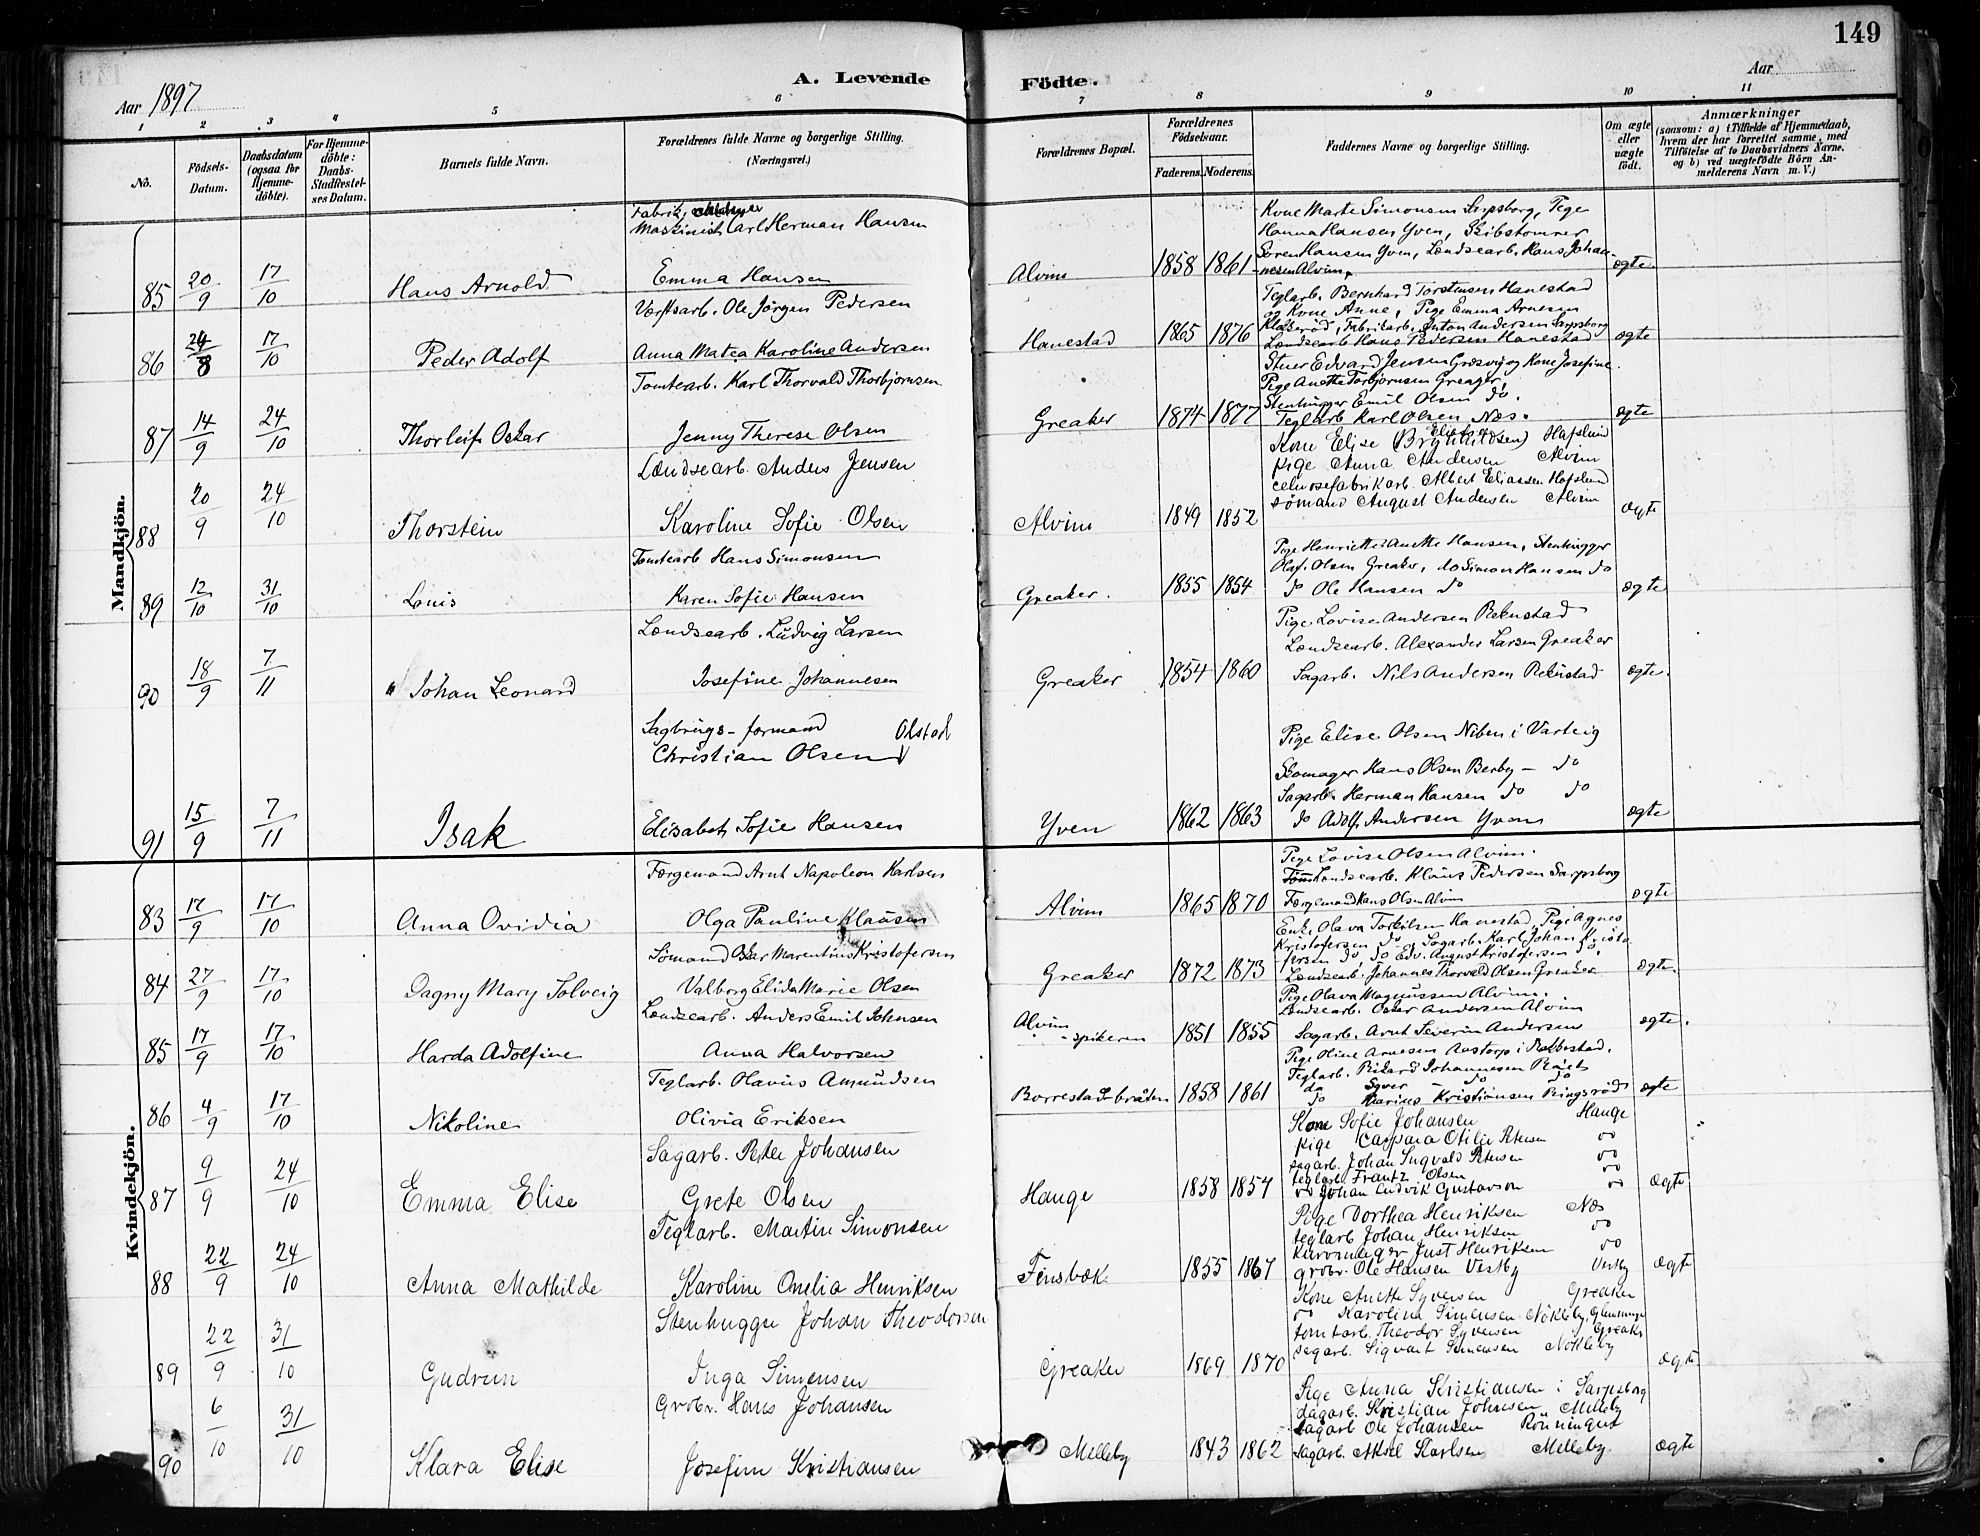 149
A. Levende Födte.
Aar 1897
Aar
1 2 3 4 5 6 7 8 9 10 11
No.
Födsels-Datum.
Daabsdatum (ogsaa for Hjemme-döbte).
For Hjemme-döbte: Daabs-Stadfæstel-ses Datum.
Barnets fulde Navn.
Forældrenes fulde Navne og borgerlige Stilling. (Næringsvei.)
Forældrenes Bopæl.
Forældrenes Födselsaar.
Faderens. Moderens.
Faddernes Navne og borgerlige Stilling.
Om ægte eller uægte födt.
Anmærkninger
(saasom: a) i Tilfælde af Hjemmedaab, hvem der har forrettet samme, med Tilföielse af to Daabsvidners Navne. og b) ved uægtefödte Börn An-melderens Navn m. V.)
Mandkjön.
85 20/9 17/10 Hans Arnold
Maskinist Carl Herman Hansen
Emma Hansen
Alvim 1858 1861
Kone Marte Simonsen Sarpsborg, Pige
Hanna Hansen Yven, Skibstömrer
Sören Hansen Yven, Lændsearb. Hans Johan-
nesen Alvim.
ægte
86 17/10 Peder Adolf
Værftsarb. Ole Jörgen Pedersen
Anna Matea Karoline Andersen
Hanestad 1865 1876
Teglarb. Bernhard Torstensen Hanestad
og Kone Anne, Pige Emma Arnesen
Fabrikarb. Anton Andersen Sarpsborg
Lændsearb Hans Pedersen Hanestad
ægte
87 14/9 24/10 Thorleif Oskar
Tomtearb. Karl Thorvald Thorbjornsen
Jenny Therese Olsen
Greaker 1874 1877
Stuer Edvard Jensen Græsvig og Kone Josefine.
Pige Anette Torbjörnsen Greager,
Stenhugger Emil Olsen do.
Teglarb Karl Olsen Næs.
ægte
88 20/9 24/10 Thorstein
Lændsearb. Anders Jensen
Karoline Sofie Olsen
Alvim 1849 1852
Kone Elise (Brynhildsen) Hafslund
pige Anna Andersen Alvim
celulosefabrikarb. Albert Eliassen Hafslund
sömand August Andersen Alvim
ægte
89 12/10 31/10 Louis
Tomtearb Hans Simonsen
Karen Sofie Hansen
Greaker. 1855 1854
Pige Henriette Anette Hansen, Stenhugger
Olaf Olsen Greaker, do Simon Hansen do
do Ole Hansen do
ægte
90 18/9 7/11 Johan Leonard
Lændsearb. Ludvig Larsen
Josefine Johannesen
Greaker 1854 1860
Pige Lovise Andersen Rekustad
Lændsearb. Alexander Larsen Greaker
Sagarb. Nils Andersen Rekustad
ægte.
91 15/9 7/11 Isak
Sagbrugs-formand Olstad
Christian Olsen
Elisabet Sofie Hansen
Yven 1862 1863
Pige Elise Olsen Niben i Varteig
Skomager Hans Olsen Berby - do
Sagarb. Herman Hansen do do
do Adolf Andersen Yven
ægte
Kvindekjön.
83 17/9 17/10 Anna Ovidia
Færgemand Arnt Napoleon Karlsen
Olga Pauline Klausen
Alvim 1865 1870
Pige Lovise Olsen Alvim.
Lændsearb. Klaus Pedersen Sarpsborg
Færgemand Hans Olsen Alvim
ægte
84 27/9 17/10 Dagny Mary Solveig
Sömand Oskar Marentius Kristofersen
Valborg Elida Marie Olsen
Greaker 1872 1873
Enke Olava Torkilsen Hanestad, Pige Agnes
Kristofersen do, Sagarb. Karl Johan Kristo
fersen do, do Edv. August Kristofersen do.
Lændsearb. Johannes Thorvald Olsen Greaker
ægte.
85 17/9 17/10 Harda Adolfine
Lændsearb. Anders Emil Johnsen
Anna Halvorsen
Alvim -spikeren 1851 1855
Pige Olava Magnussen Alvim.
Lændsearb. Oskar Andersen Alvim
Sagarb. Arnt Severin Andersen
ægte.
86 4/9 17/10 Nikoline
Teglarb. Olavus Amundsen
Olivia Eriksen
Borrestadbråten 1858 1861
Pige Oline Arnesen Aastorp i Rakkestad.
Teglarb. Rikard Johannesen Röiet
do Syver do do
do Marius Kristiansen Ringsröd
ægte
87 9/9 24/10 Emma Elise
Sagarb. Peter Johansen
Grete Olsen
Hauge 1858 1854
Kone Sofie Johansen Hauge
pige Caspara Otilie Petersen do
sagarb. Johan Ingvald Petersen do
teglarb. Frantz Olsen do
do Johan Ludvik Gustavson do
ægte
88 22/9 24/10 Anna Mathilde
Teglarb. Martin Simonsen
Karoline Omelia Henriksen
Finsbæk 1855 1867
Pige Dorthea Henriksen Næs
teglarb Johan Henriksen do
kurvmager Just Henriksen do
grbr. Ole Hansen Visby Visby
ægte
89 22/9 31/10 Gudrun
Stenhugger Johan Theodorsen
Inga Simensen
Greaker 1869 1870
Kone Anette Syversen Greaker
do Karolina Simensen Nökleby, Glemminge
tomtarb. Theodor Syversen Greaker
sagarb. Sigvart Simensen Nökleby
ægte
90 6/10 31/10 Klara Elise
Grbr. Hans Johansen
Josefine Kristiansen
Melleby 1843 1862
Pige Anna Kristiansen i Sarpsborg
dagarb. Kristian Johnsen Melleby
sagarb Ole Johansen Rönningen
sagarb Aksel Karlsen Melleby.
ægte